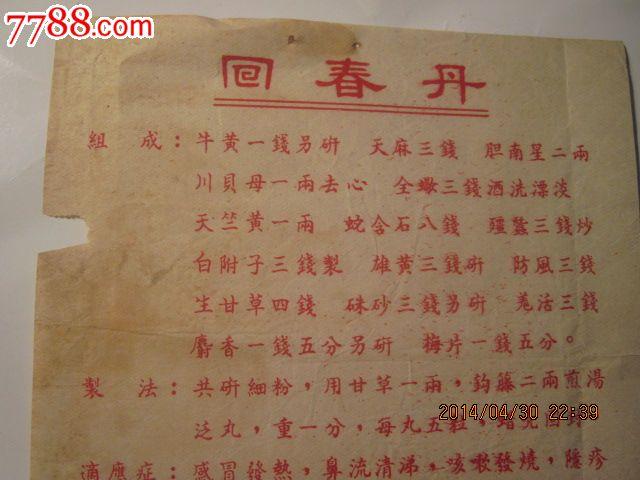 7788.com
回春丹
組成：牛黃一錢另研 天麻三錢 胆南星二兩
川貝母一兩去心 全蠍三錢洒洗漂淡
天竺黃一兩 蛇含石八錢 殭蠶三錢炒
白附子三錢製 雄黃三錢研 防風三錢
生甘草四錢 硃砂三錢另研 羌活三錢
麝香一錢五分另研 梅片一錢五分。
製法：共研細粉，用甘草一兩，鈎藤二兩煎湯
泛丸，重一分，每丸五粒，蜡壳
2014/04/30 22:39
適應症：感冒發熱，鼻流清涕，咳嗽發燒，隱疹